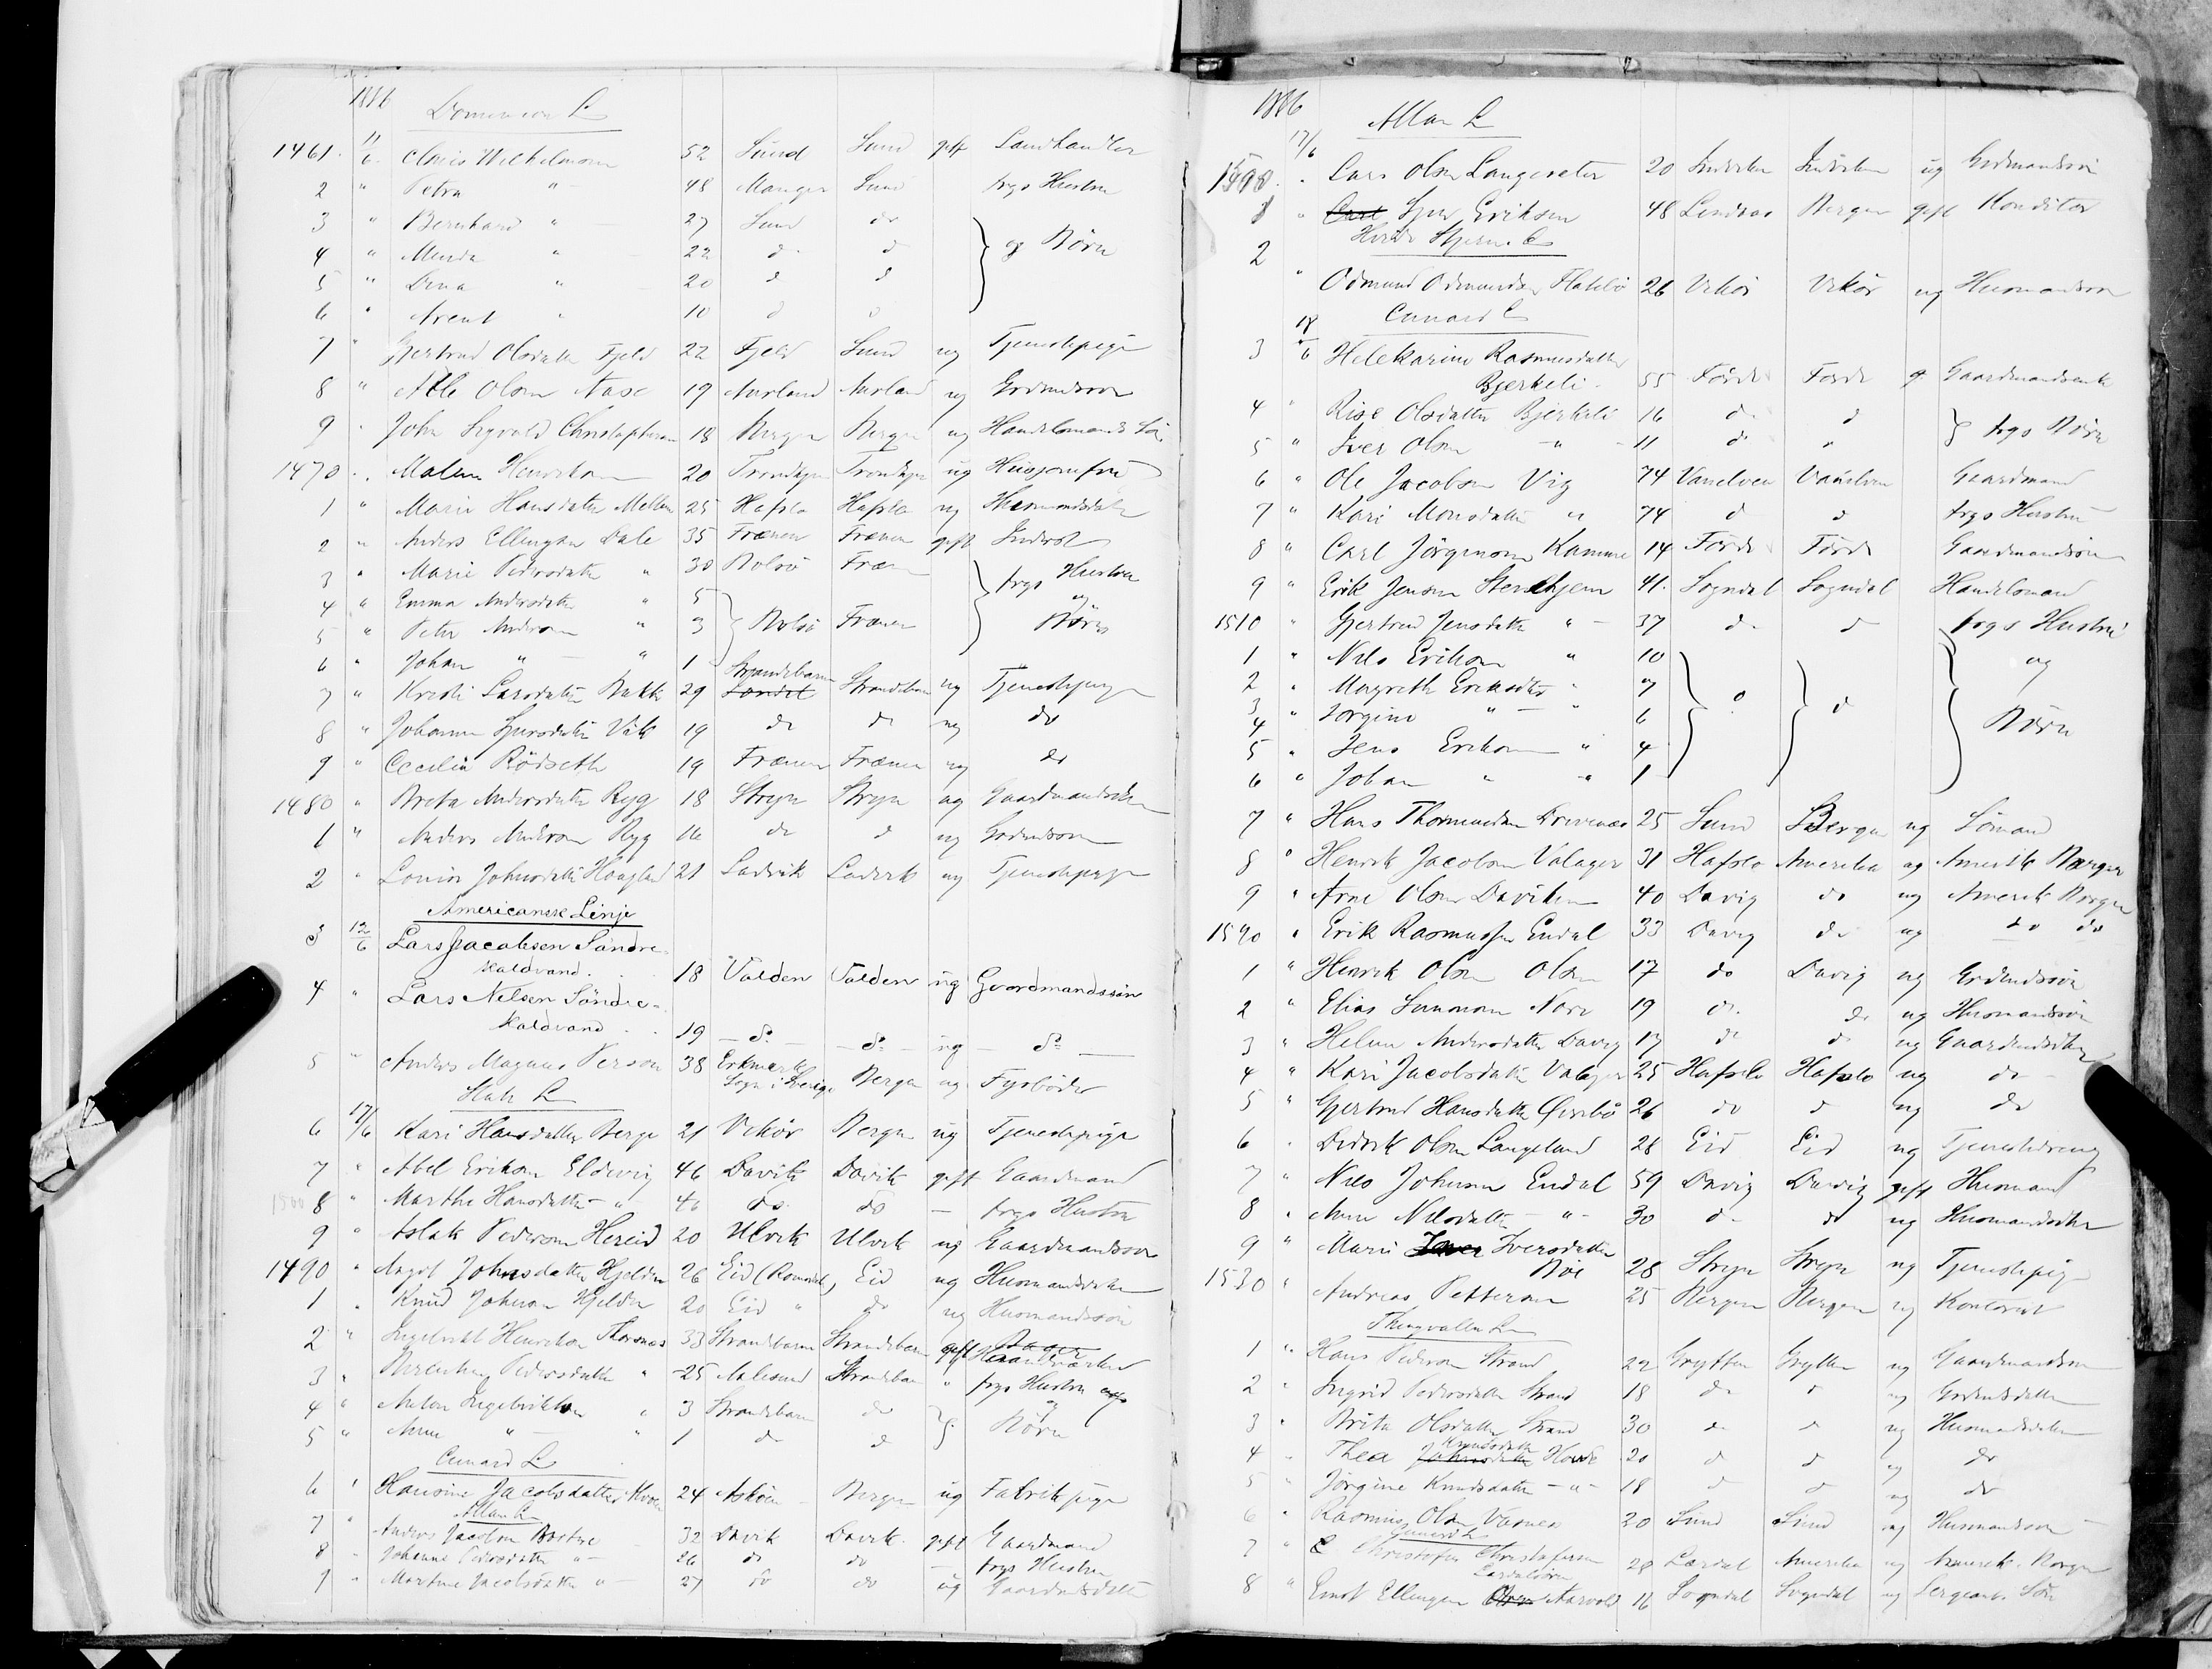 1886
Dominion L
1461. 11/6. Claus Wilhelmsen 52 Sund Sund gift Landhandler
2 " Petra " 48 Manger Sund hrgs Hustru
3 " Bernhard " 27 Sund do
4 " 22 d d og Børn
5 " Dina " 20 d d
6 " Arent " 10 d d
7 " Gjertrud Olsdatter Fjeld 22 Fjeld Sund ug Tjenestepige
8 " Olsen Aase 19 Aurland Aurland ug
9 " John Sigvald Christophersen 18 Bergen Bergen ug Handelsmands Søn
1470 " Malene Henriksen 20 Trondhjem Trondhjem ug Husjomfru
1 " Marie Hansdatter 25 Hafslo Hafslo ug Husmandsdatter
2 " Anders Ellingsen Dale 35 Frænen Frænen gift Inderst
3 " Marie Pedersdatter " 30 Bolsø Fræn hrgs Hustru
4 " Emma Andersdatter " 5 og
5 " Peter Andersen " 3 Bolsø Frænen Børn
6 " Johan " " 1
7 " Kristi Larsdatter Bakke 29 Strandebarm Strandebarm ug Tjenestepige
8 " Johanne Sjursdatter Vik 19 do do ug do
9 " Cecilia Rödseth 19 Frænen Frænen ug do
1480 " Brita Andersdatter Ryg 18 Stryn Stryn ug Gaardmandsdatter
1 " Anders Andersen Ryg 16 do d ug
2 " Lovise Johnsdatter Haugland 21 Ladvik Ladvik ug Tjenestepige
Americanske Linje
3 12/6 Lars Jacobsen Søndre-
Kaldvand. 18 Valden Valden ug Gaardmandssøn
4 " Lars Nelsen Søndre-
Kaldvand 19 do do ug do
5 " Anders Magnus Person 38
Sogn i Sverige Bergen ug Fyrbøder
State L
6 17/6 Kari Hansdatter Berge 21 Vikør Bergen ug Tjenestepige
7 " Abel Eriksen Eldevig 46 Davik Davik gift Gaardmand
1500 8 " Marthe Hansdatter " 46 do do — hrgs Hustru
9 " Aslak Pedersen Hereid 20 Ulvik Ulvik ug Gaardmandssøn
1490 " Johnsdatter Hjelden 26 Eid (Romsdal) Eid ug Husmandsdatter
1 " Knud Johnsen Hjelden 20 Eid " do ug Husmandssøn
2 " Ingebrigt Henriksen 33 Strandebarm Strandebarm gift Haandværker
3 " Pedersdatter " 25 Aalesund Strandebarm " hrgs Hustru
4 " Anton Ingebrigtsen " 3 Strandebarm do og
5 " Anne " " 1 do d Børn
Cunard L
6 " Hansine Jacobsdatter 24 Askøen Bergen ug Fabrikpige
Allan L
7 " Anders Jacobsen 32 Davik Davik gift Gaardmand
8 " Johanne Pedersdatter " 26 do do — hrgs Hustru
9 " Martine Jacobsdatter " 27 do do ug
1886
Allan L
17/6
1500 " Lars Olsen Langeseter 20 Indviken Indviken ug
1 " Sjur Eriksen 48 Lindaas Bergen gift Konditor
Hvide Stjerne L
2 " Odmund Odmundsen 26 Vikør Vikør ug Husmandssøn
Cunard L
3 18/6 Helekarine Rasmusdatter
Bjerkeli 55 Førde Førde g. Gaardmandsenke
4 " Rise Olsdatter Bjerkeli 16 do d
5 " Iver Olsen " 11 do " hrgs Børn
6 " Ole Jacobsen Vig 74 Vanelven Vanelven Gaardmand
7 " Kari Monsdatter " 74 d d hrgs Hustru
8 " Carl Jørgensen 14 Førde Førde Gaardmandssøn
9 " Erik Jensen Stenehjem 41. Sogndal Sogndal Handelsmand
1510 " Gjertrud Jensdatter " 37 do d hrgs Hustru
1 " Nils Eriksen " 10 og
2 " Margrethe Eriksdtr " 7
3
4 " Jorgine " " 6 do d Børn
5 " Jens Eriksen " 4
6 " Johan " " 1
7 " Hans Thormundsen Drevenæs 25 Sund Bergen ug Sömand
8 " Henrik Jacobsen Valager 31 Hafslo Amerika ug Amerik Borger
9 " Arne Olsen Daviken 40 Davig do ug Amerik Borger
1520 " Erik Rasmussen Endal 33 Davig do ug do do
1 " Henrik Olsen Olsen 17 do Davig ug
2 " Elias 19 do. do ug Husmandssøn
3 " Helene Andersdatter Davig 17 do do ug
4 " Kari Jacobsdatter Valager 25 Hafslo Hafslo ug do
5 " Gjertrud Hansdatter 26 do d ug do
6 " Didrik Olsen Langeland 28 Eid Eid ug Tjenestedreng
7 " Nils Johnsen Endal 59 Davig Davig gift Husmand
8 " Anne Nilsdatter " 30 do do ug Husmandsdtr
9 " Marie Iversdatter
Bøe 28 Stryn Stryn ug Tjenestepige
1530 " Andreas Pettersen 25 Bergen Bergen ug Kontorist
Thingvalla L
1 " Hans Pedersen Strand 22 Grytten Grytten ug Gaardmandssøn
2 " Ingrid Pedersdatter Strand 18 do d ug
3 " Brita Olsdatter Strand 30 do d ug Husmandsdatter
4 " Thea Knudsdatter 20 d d ug do
5 " Jørgine Knudsdatter " 18 d d ug do
6 " Rasmus Olsen 20 Sund Sund ug Husmandssøn
Cunard L
7 " Christofer Christofersen
28 Lærdal Amerika ug Amerik. Borger
8 " Ellingsen 16 Sogndal Sogndal ug Sergeants Søn